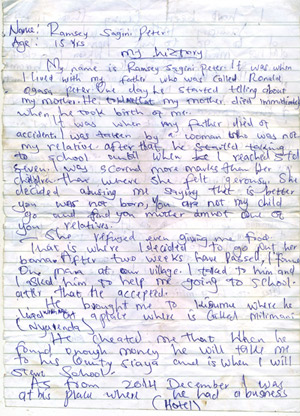 Name: Ramsey Sagini Peter
Age: 15 Yrs
my history
My name is Ramsey Sagini Peter. It was when
I lived with my father who was called Ronald
peter One day he started telling about
my mother. He my mother died immediately
when he took birth of me.
I was when my father died of
accident. I was taken by a woman who was not
my relative after that he started taking
to school until when he I reached std
Seven. I was scored more marks than her
children that where she felt gerousy. She
decided abusing me saying that is better
you was not born, you are not my child
go and find you mother amnot one of
you relatives.
She refused even giving me food.
That is where I decided to go out her
boma. After two weeks have passed, I found
One man at our village. I told to him and
I asked him to help me going to school.
after that he accepted.
He brought me to where he
a place where is called milimani
(Nyalenda)
He cheated me that when he
found enough money he will take me
to his County Siaya and is when I will
start School.
As from 2014 December I was
at his place where he had a business
(Hotel)